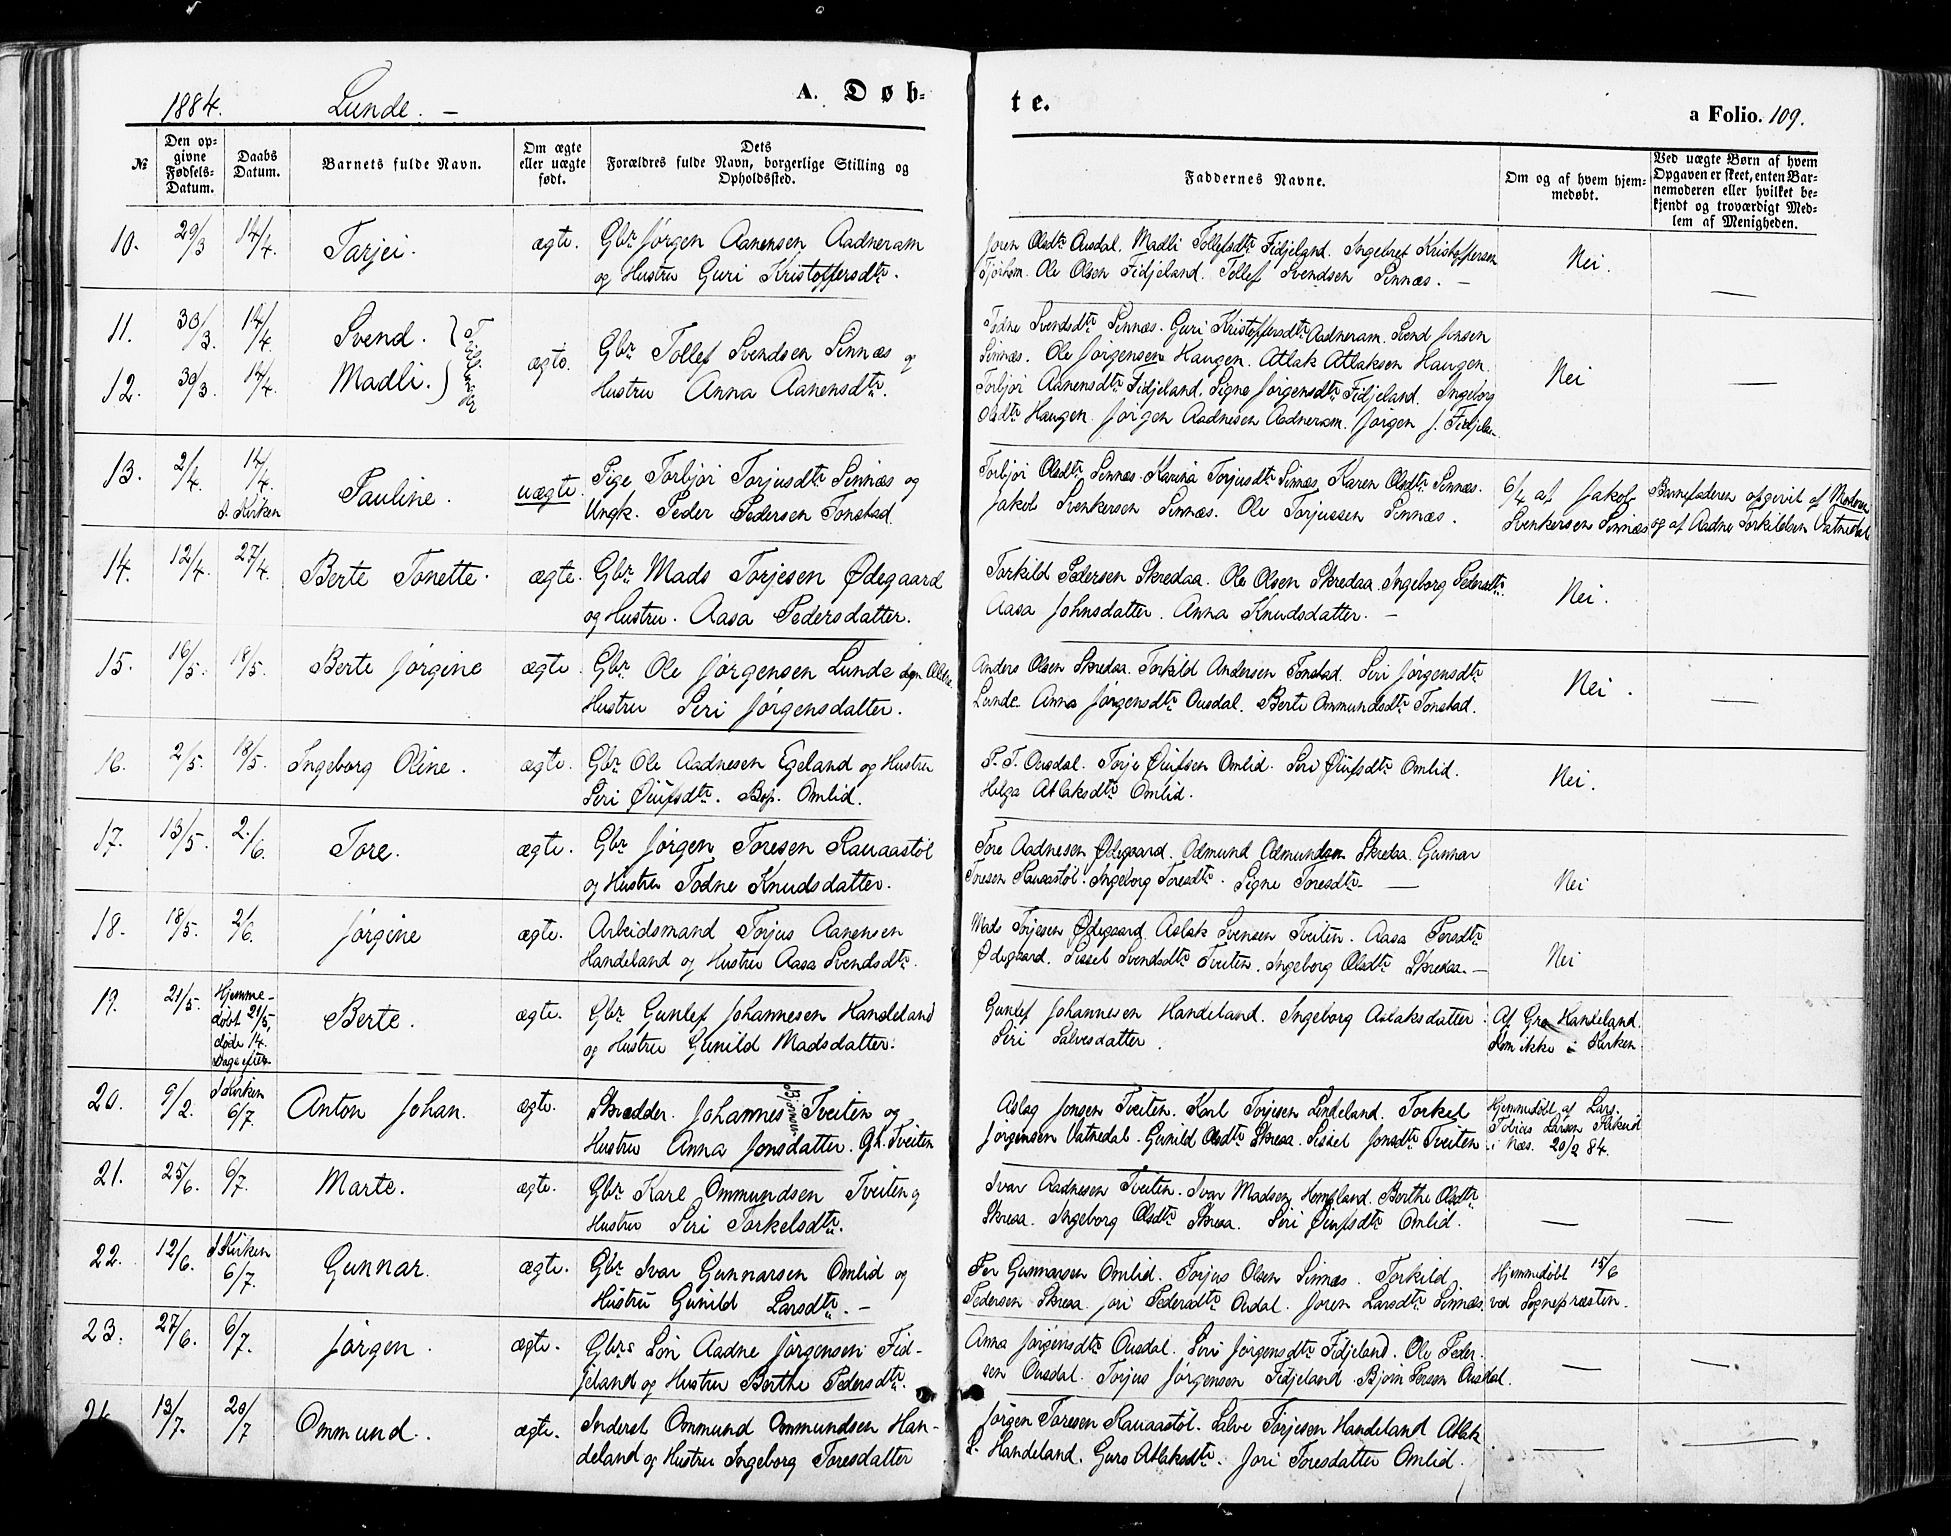 1884. Lunde. — A. Døb-
te.
a Folio. 109.
№
Den op-
givne
Fødsels-
Datum.
Daabs
Datum.
Barnets fulde Navn.
Om ægte
eller uægte
født.
Dets
Forældres fulde Navn, borgerlige Stilling og
Opholdssted.
Faddernes Navne.
Om og af hvem hjem-
medøbt.
Ved uægte Børn af hvem
Opgaven er skeet, enten Bar-
nemoderen eller hvilket be-
kjendt og troværdigt Med-
lem af Menigheden.
10. 29/3 14/4. Tarjei. ægte. Gbr Jørgen Aanensen Aadneram
og Hustru Guri Kristoffersdtr.
Joren Olsdtr Ousdal. Madli Tollefsdtr Fidjeland. Ingebret Kristoffersen
Tjørhom. Ole Olsen Fidjeland. Tollef Svendsen Sinnæs. —
Nei. —
11. 30/3. 14/4. Svend. } Tvillinger
12. 30/3. 14/4. Madli. }
ægte. Gbr Tollef Svendsen Sinnæs og
Hustru Anna Aanensdtr.
Todne Svendsdtr Sinnæs. Guri Kristoffersdtr Aadneram. Svend Jonsen
Sinnæs. Ole Jørgensen Haugen. Atlak Atlaksen Haugen.
Torbjør Aanensdtr Fidjeland. Signe Jørgensdtr Fidjeland. Ingeborg
Olsdtr Haugen. Jørgen Aadnesen Aadneram. Jørgen J. Fidjelan
Nei —
13. 2/4. 14/4. I. Kirken Pauline. uægte. Pige Torbjør Torjusdtr Sinnæs og
Ungk. Peder Pedersen Tonstad.
Torbjør Olsdtr Sinnæs. Karina Torjusdtr Sinnæs. Karen Olsdtr Sinnæs.
Jakob Svenkersen Sinnæs. Ole Torjussen Sinnæs.
6/4 af Jakob
Svenkersen Sinnæs
Barnefaderen opgivet af Moderen
og af Aadne Torkildsen Vatnedal
14. 12/4. 27/4. Berte Tonette. ægte. Gbr Mads Torjesen Ødegaard
og Hustru. Aasa Pedersdatter.
Torkild Pedersen Skredaa. Ole Olsen Skredaa. Ingeborg Pedersdtr.
Aasa Johnsdatter. Anna Knudsdatter. —
Nei.
15. 16/5. 18/5. Berte Jørgine ægte. Gbr Ole Jørgensen Lunde
Hustru Seri Jørgensdatter.
Anders Olsen Skredaa. Torkild Andersen Tonstad. Seri Jørgensdtr
Lunde. Anna Jørgensdtr Ousdal. Berte Ommundsdtr Tonstad.
Nei. —
16. 2/5. 18/5. Ingeborg Oline. ægte. Gbr Ole Aadnesen Egeland og Hustru
Seri Øiufsdtr. Bop. Omlid.
P. T. Ousdal. Torje Øiufsen Omlid. Seri Øiufsdtr Omlid.
Helga Atlaksdtr Omlid.
Nei.
17. 13/5. 2./6. Tore. ægte. Gbr Jørgen Toresen Rauaastøl
og Hustru Todne Knudsdatter.
Tore Aadnesen Ødegaard. Odmund Odmundsen Skredaa. Gunnar
Toresen Rauaastøl. Ingeborg Toresdtr. Signe Toresdtr. —
Nei
18. 18/5. 2/6. Jørgine ægte. Arbeidsmand Torjus Aanensen
Handeland og Hustru Aasa Svendsdtr.
Mads Torjesen Ødegaard. Aslak Svensen Tveiten. Aasa Persdtr
Ødegaard. Sissel Svendsdtr Tveiten. Ingeborg Olsdtr Skredaa. —
Nei
19. 21/5. Hjemme-
døbt 21/5,
døde 14.
Dage efter.
Berte. ægte. Gbr Gunlef Johannesen Handeland
og Hustru Gunild Madsdatter.
Gunlef Johannesen Handeland. Ingeborg Aslaksdatter
Seri Salvesdatter.
Af Gro Handeland.
Kom ikke i Kirken
20. 9/2. I Kirken
6/7. Anton Johan. ægte. Skrædder. Johannes Tveiten og
Hustru Anna Jonsdatter. Gd. Tveiten
Aslag Jonsen Tveiten. Karl Torjesen Lindeland. Torkel
Jørgensen Vatnedal. Gunild Olsdtr Skreaa. Sissel Jonsdtr Tveiten
Hjemmedøbt af Lars.
Tobias Larsen Kirkeid
i Næs. 20/2 84.
21. 25/6. 6/7. Marte. ægte. Gbr Karl Ommundsen Tveiten og
Hustru Seri Torkelsdtr.
Ivar Aadnesen Tveiten. Ivar Madsen Hompland. Berthe Olsdtr
Skreaa. Ingeborg Olsdtr Skreaa. Seri Øiufsdtr Omlid.
— —
22. 12/6. I Kirken
6/7. Gunnar. ægte. Gbr Ivar Gunnarsen Omlid og
Hustru Gunild Larsdtr. —
Per Gunnarsen Omlid. Torjus Olsen Sinnæs. Torkild
Pedersen Skreaa. Jori Pedersdtr Ousdal. Joren Larsdtr Sinnæs.
Hjemmedøbt 15/6
ved Sognepræsten.
23. 27/6. 6/7. Jørgen. ægte. Gbrs Søn Aadne Jørgensen Fid-
jeland og Hustru Berthe Pedersdtr.
Anna Jørgensdtr Ousdal. Seri Jørgensdtr Fidjeland. Ole Peder-
sen Ousdal. Torjus Jørgensen Fidjeland. Bjørn Persen Ousdal.
— —
13/7. 20/7 Ommund. ægte. Inderst Ommund Ommundsen Han-
deland og Hustru Ingeborg Toresdatter
Jørgen Toresen Rauaastøl. Salve Torjesen Handeland Atlak
S. Handeland. Guro Atlaksdtr. Jori Toresdatter Omlid.
— —